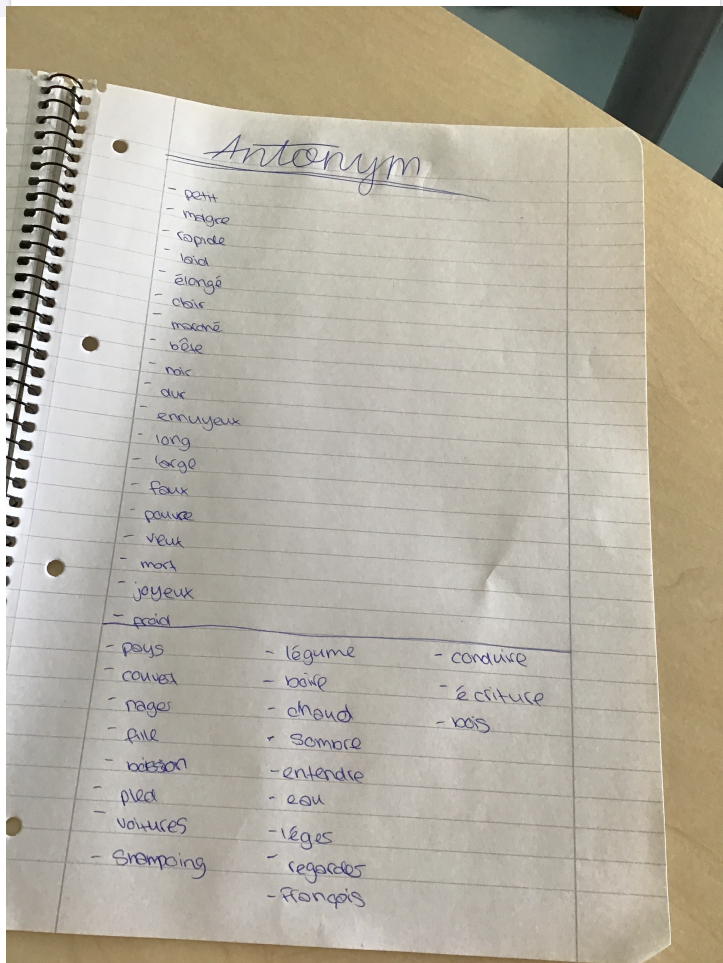 Antonym
- petit
- maigre
- rapide
- laid
- élongé
- clair
- bête
- noir
- dur
- ennuyeux
- long
- large
- faux
- pauvre
- vieux
- mort
- joyeux
- froid
- pays
- couvert
- nager
- fille
- boisson
- pied
- voitures
- Shampoing
- légume
- boire
- chaud
- sombre
- entendre
- eau
- léger
- regarder
- français
- conduire
- écriture
- bois